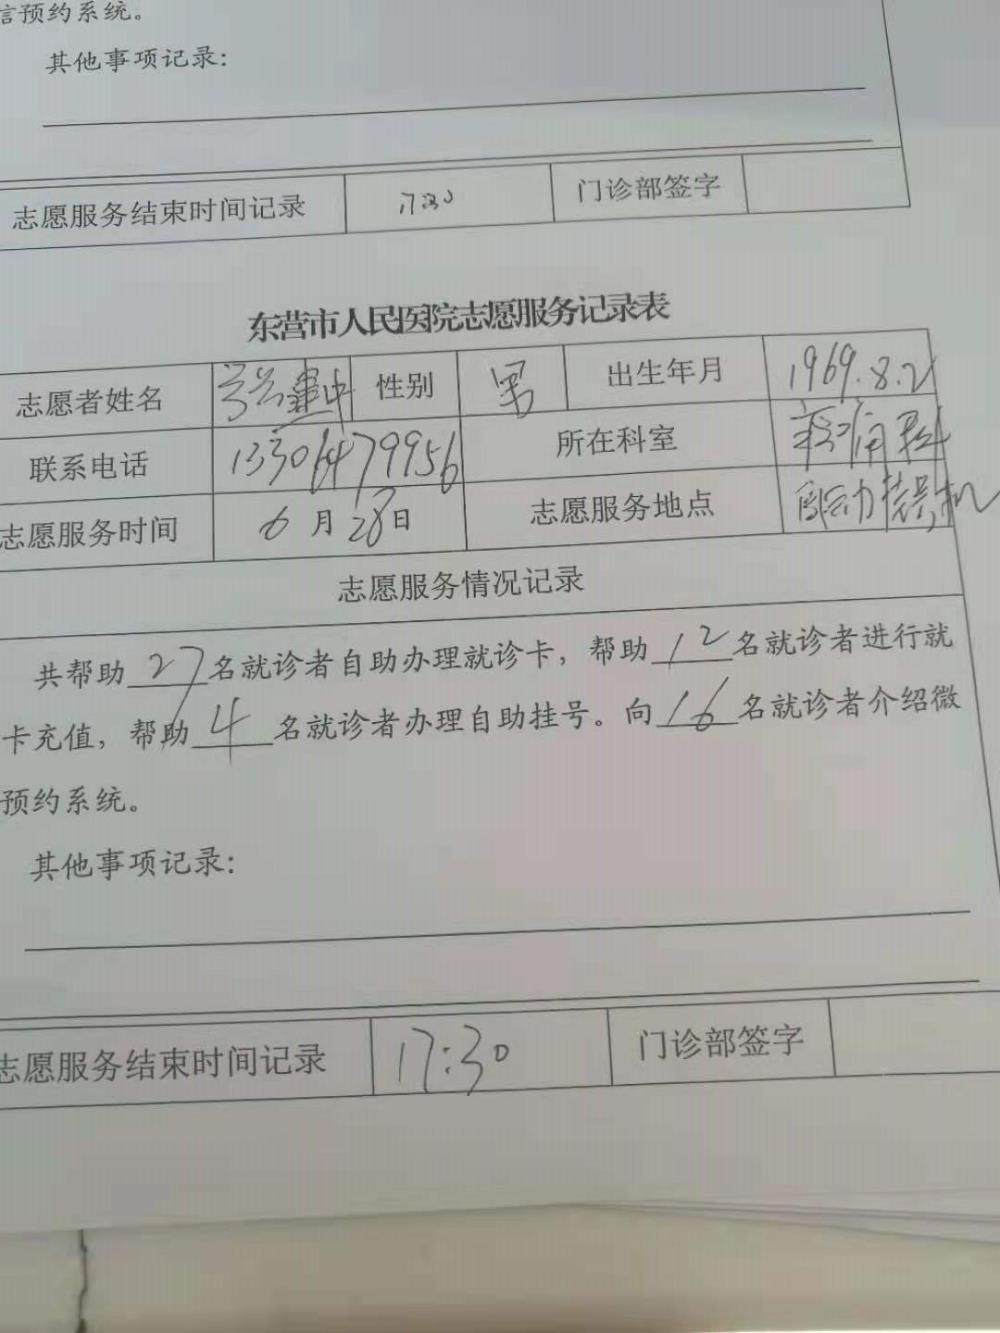 信预约系统。
其他事项记录:
志愿服务结束时间记录 17:30 门诊部签字
东营市人民医院志愿服务记录表
志愿者姓名 性别 男 出生年月 1969.8.2
联系电话 13306479956 所在科室
志愿服务时间 6月28日 志愿服务地点 自动挂号机
志愿服务情况记录
共帮助27名就诊者自助办理就诊卡，帮助12名就诊者进行就
卡充值，帮助4名就诊者办理自助挂号。向16名就诊者介绍微
预约系统。
其他事项记录:
志愿服务结束时间记录 17:30 门诊部签字